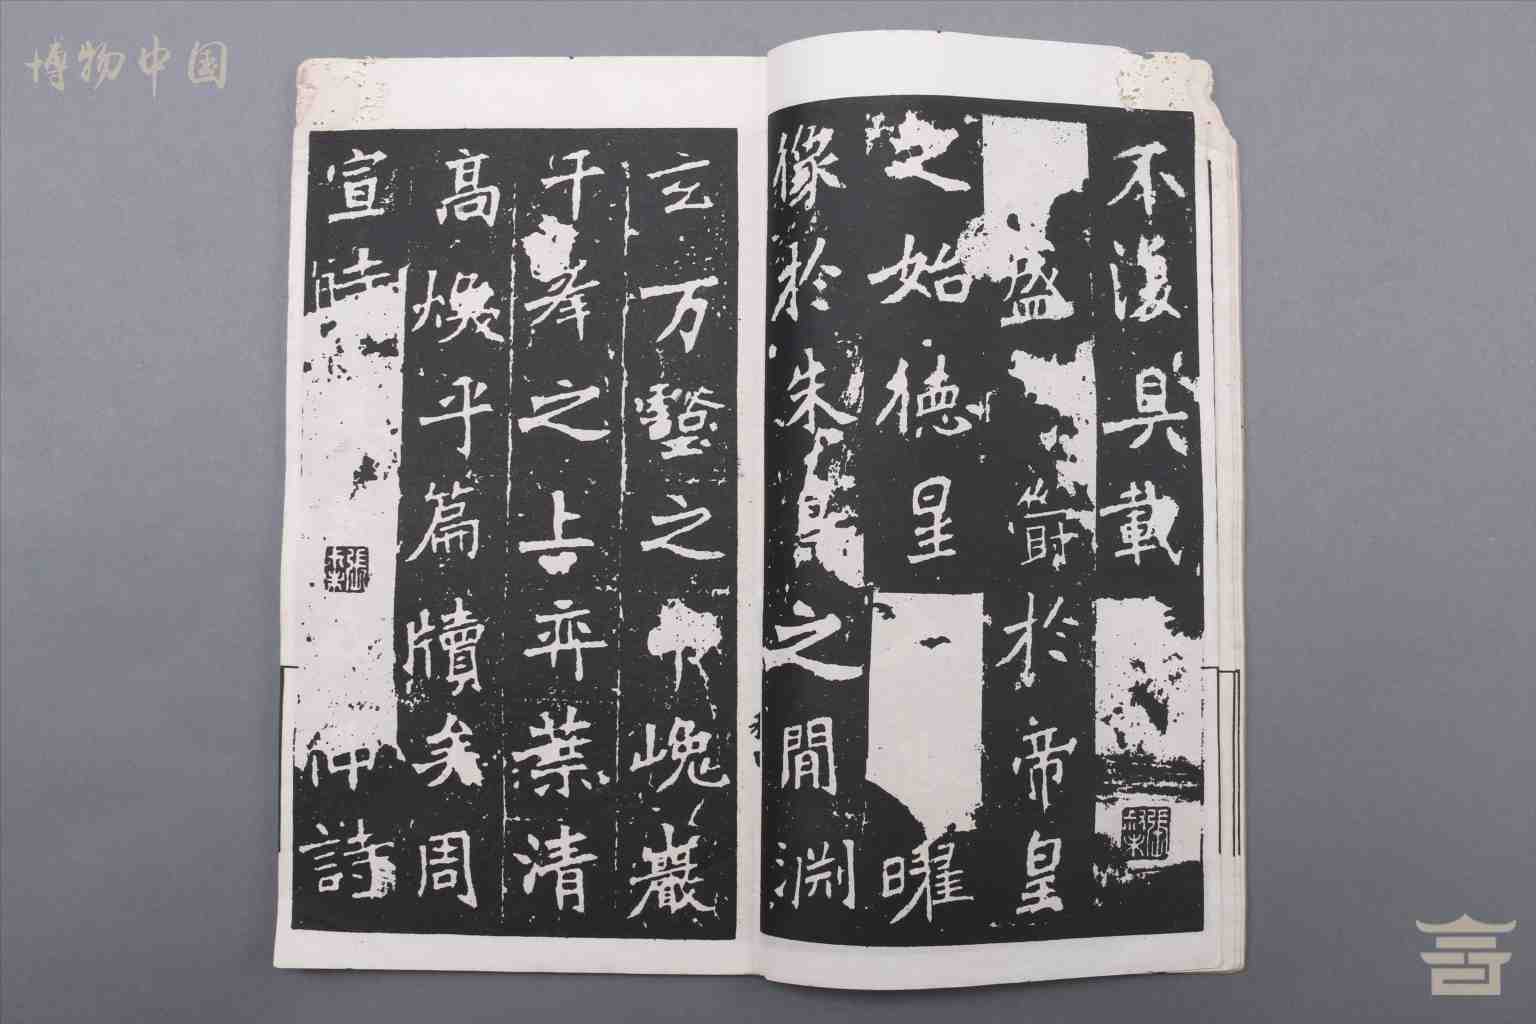 博物中国
不復具載
盛於帝皇
之始德星曜
像於朱之間淵
玄万壑之中巉巖
千峯之上弈葉清
高煥乎篇牘矣周
宣時仲詩